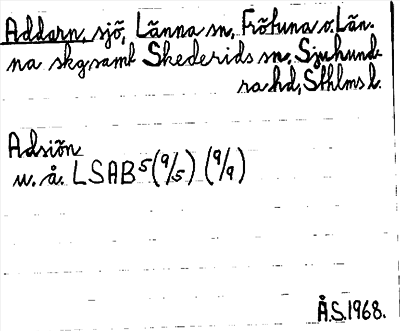 Addarn, sjö, Länna sn, Frötuna o. Län-
na skg samt Skederids sn, Sjuhund-
ra hd, Sthlms l.
Adsiön
u. å. LSAB 5 (9/5) (9/9)
Å.S. 1968.